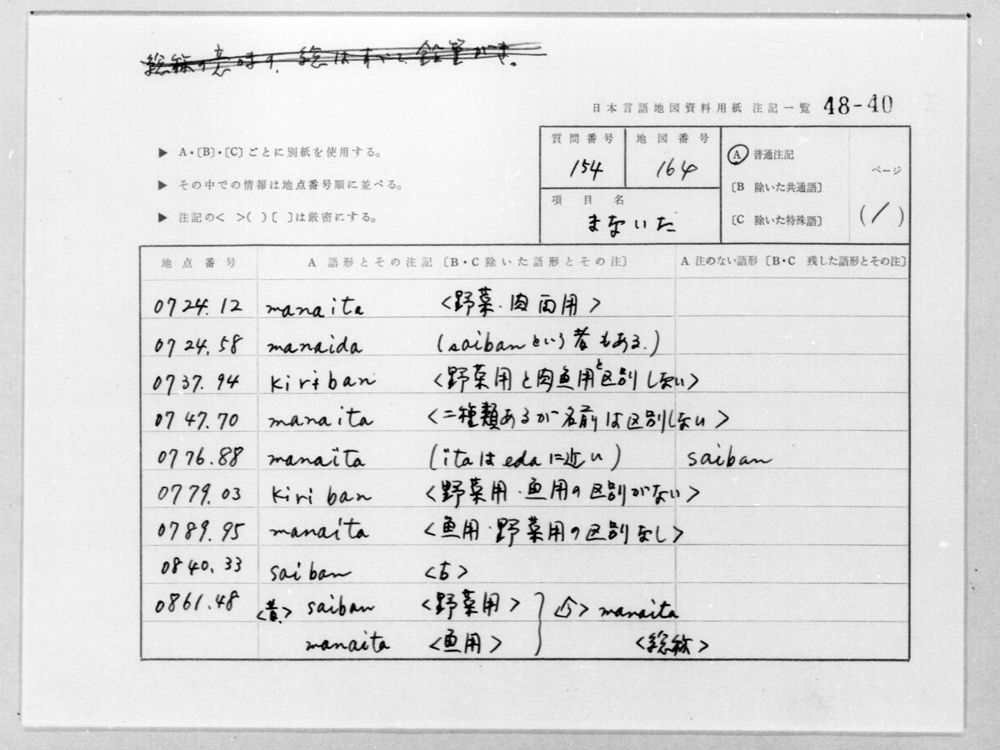 総称の意味の、総はすべて鉛筆がき。
日本言語地図資料用紙 注記一覧 48-40
▶ A・〔B〕・〔C〕ごとに別紙を使用する。
▶ その中での情報は地点番号順に並べる。
▶ 注記の< >( )[ ]は厳密にする。
質問番号 地図番号
154 164
項目名
まないた
Ⓐ 普通注記
〔B 除いた共通語〕
〔C 除いた特殊語〕
ページ
(1)
地点番号 A 語形とその注記〔B・C 除いた語形とその注〕 A 注のない語形〔B・C 残した語形とその注〕
0724.12 manaita <野菜・肉両用>
0724.58 manaida (saibanという者もある.)
0737.94 kiriban <野菜用と肉魚用と区別しない>
0747.70 manaita <二種類あるが名前は区別しない>
0776.88 manaita (itaはedaに近い) saiban
0779.03 kiriban <野菜用・魚用の区別がない>
0789.95 manaita <魚用・野菜用の区別なし>
0840.33 saiban <古>
0861.48 <昔> saiban <野菜用> } <今> manaita
manaita <魚用> <総称>